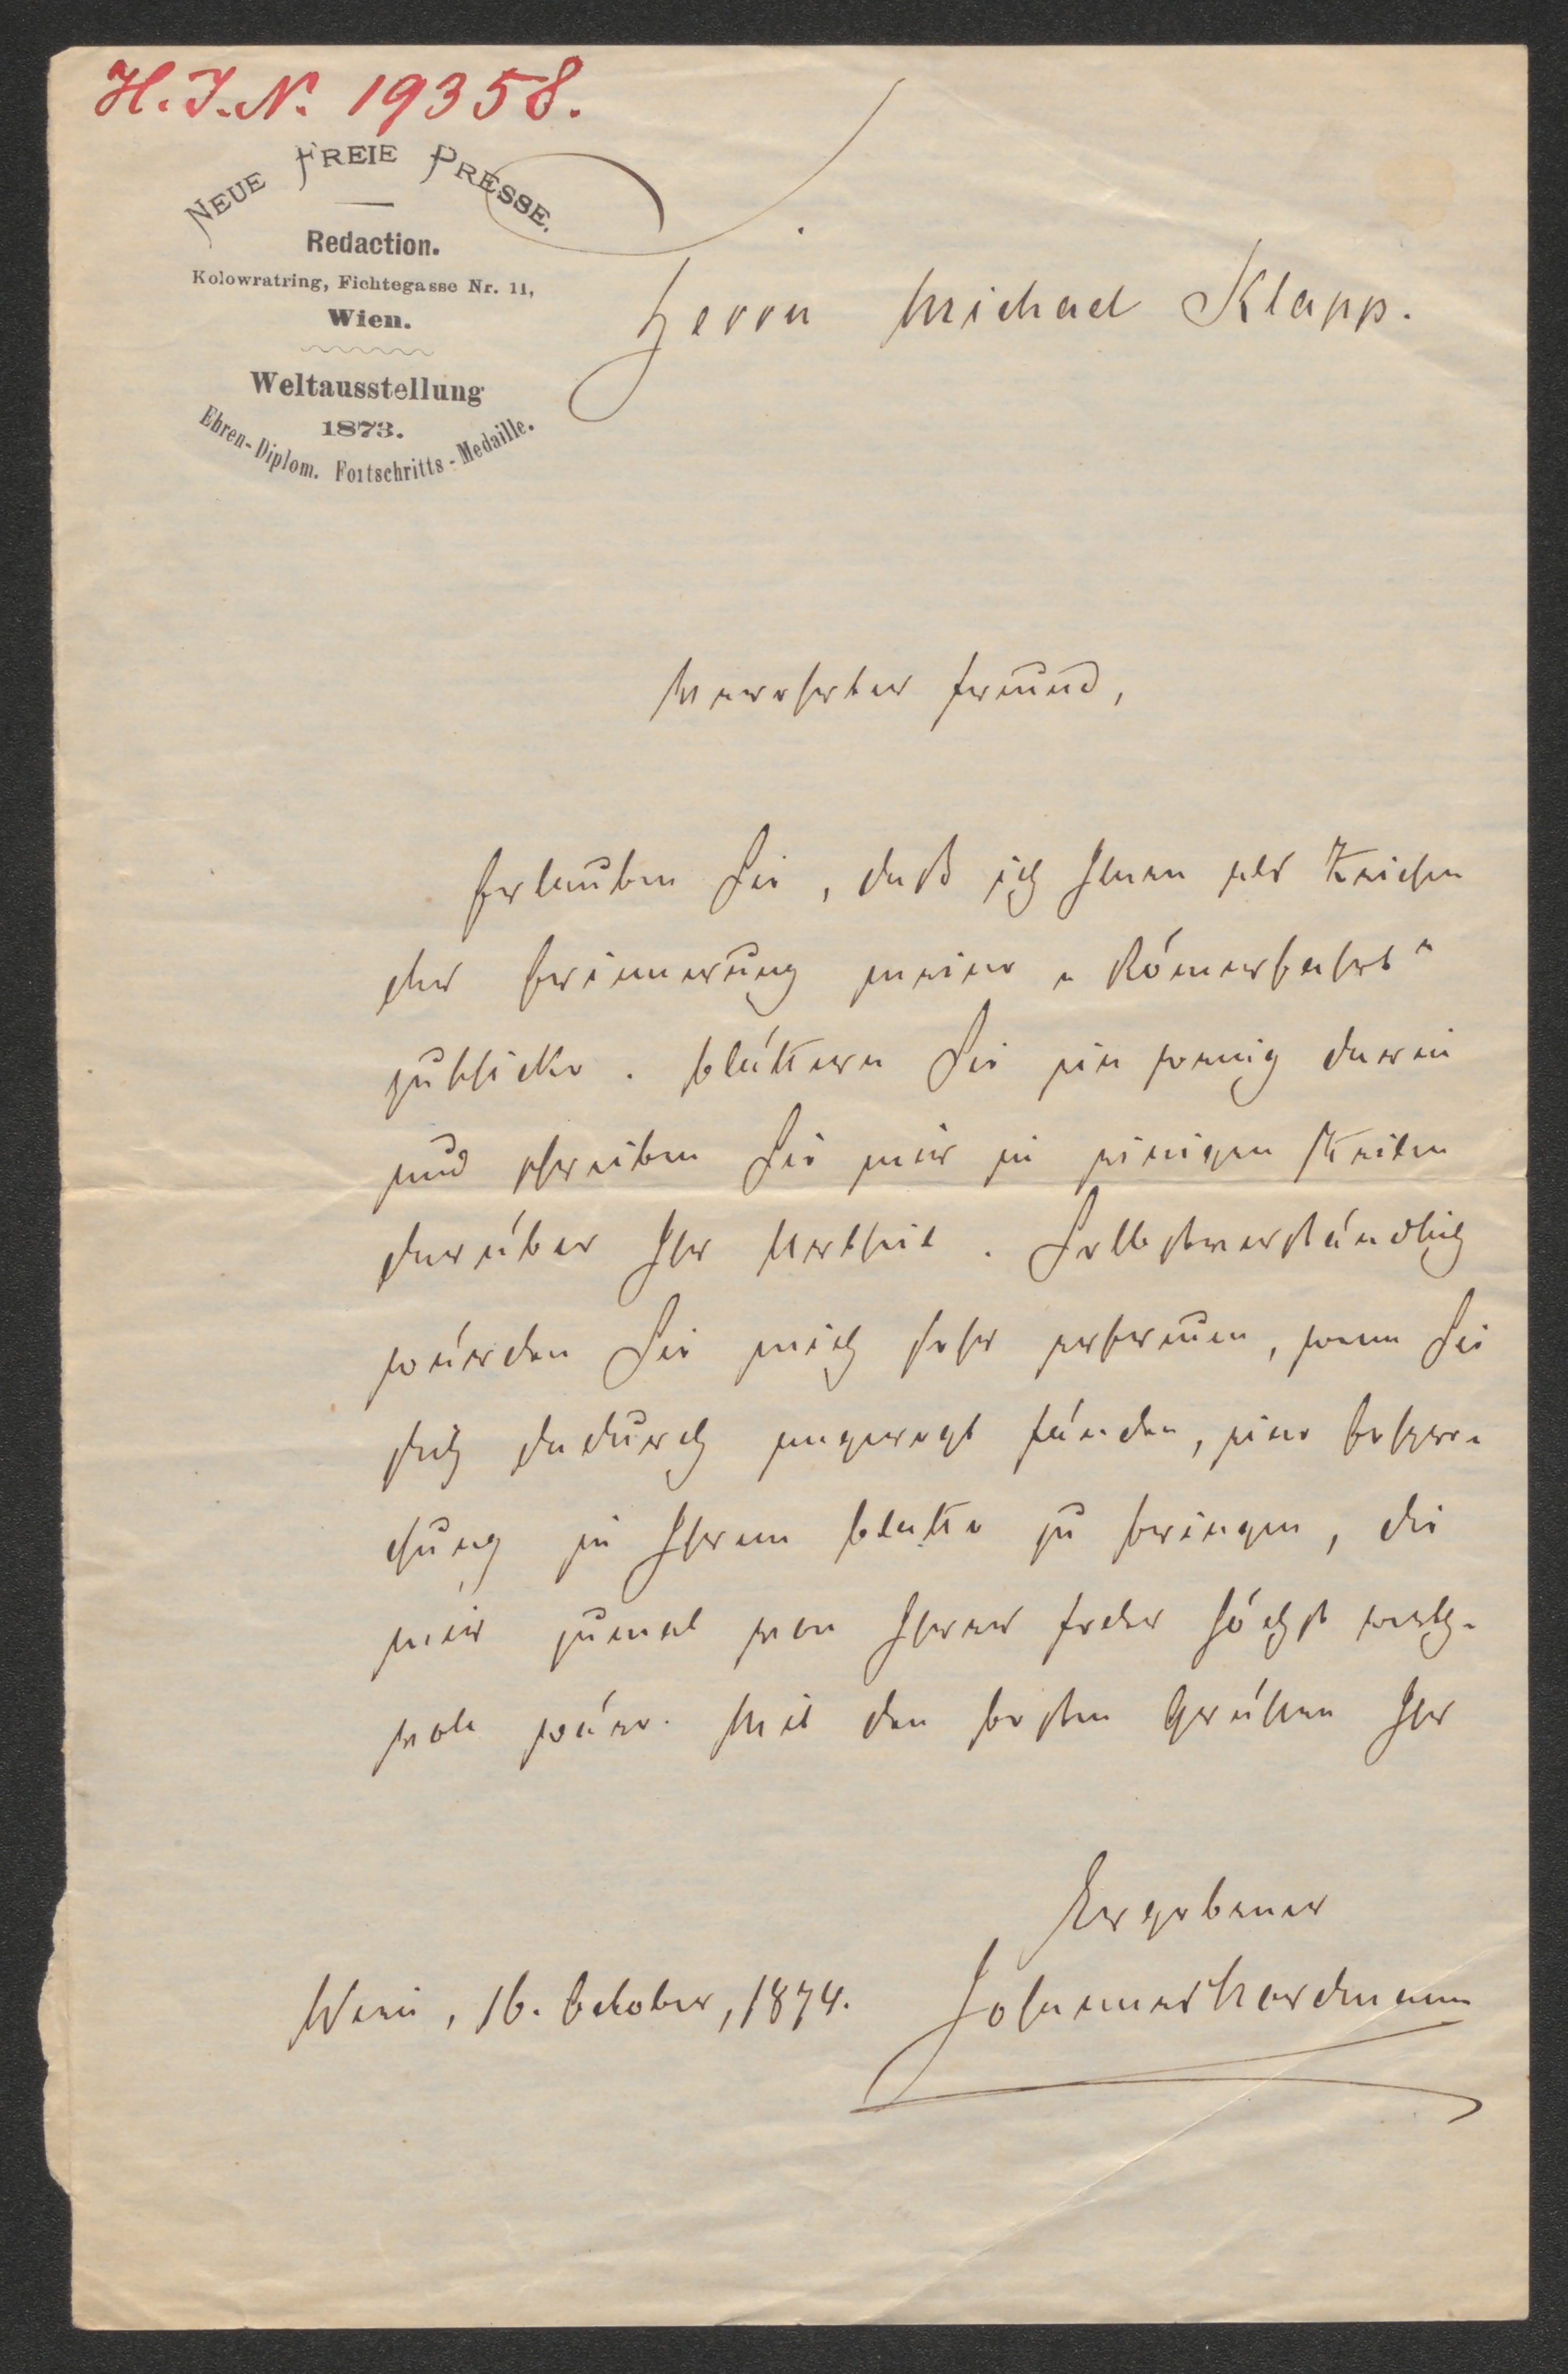 H. I. N. 19358.
NEUE FREIE PRESSE.
Redaction.
Kolowratring, Fichtegasse Nr. 11,
Wien.
Weltausstellung
1873.
Ehren-Diplom. Fortschritts-Medaille.
Herrn Michael Klapp.
Verehrter Freund,
Erlauben Sie, daß ich Ihnen als Zeichen
der Erinnerung meine „Römerfahrt“
zuschicke. Blättern Sie ein wenig darin
und schreiben Sie mir in einigen Zeilen
darüber Ihr Urtheil. Selbstverständlich
würden Sie mich sehr erfreuen, wenn Sie
sich dadurch angeregt fänden, eine Bespre-
chung in Ihrem Blatte zu bringen, die
mir zumal von Ihrer Feder höchst werth-
voll wäre. Mit den besten Grüßen Ihr
Ergebener
Wien, 16. October, 1874. Johannes Nordmann